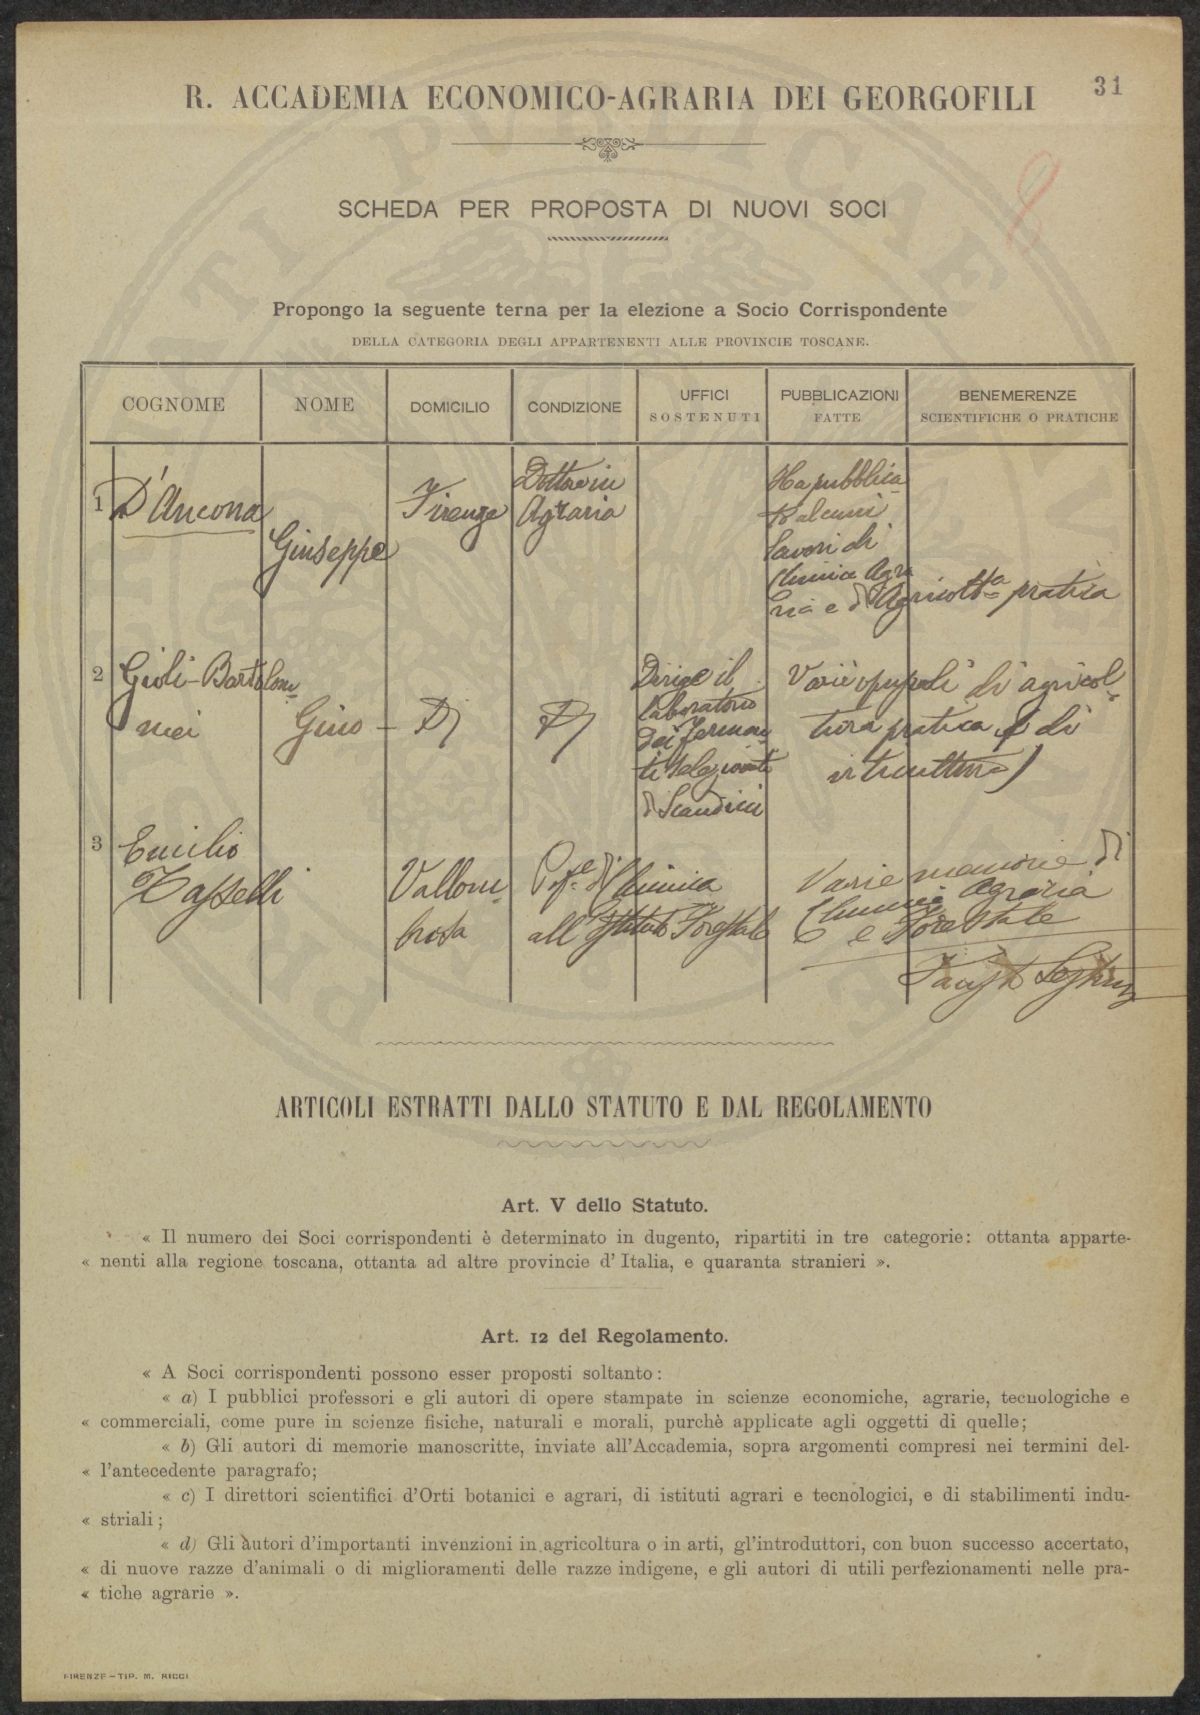 31
R. ACCADEMIA ECONOMICO-AGRARIA DEI GEORGOFILI
8
SCHEDA PER PROPOSTA DI NUOVI SOCI
Propongo la seguente terna per la elezione a Socio Corrispondente
DELLA CATEGORIA DEGLI APPARTENENTI ALLE PROVINCIE TOSCANE.
COGNOME NOME DOMICILIO CONDIZIONE UFFICI SOSTENUTI PUBBLICAZIONI FATTE BENEMERENZE SCIENTIFICHE O PRATICHE
1 D'Ancona
Giuseppe
Firenze
Dottore in
Agraria
Ha pubblica-
to alcuni
lavori di
Chimica Agra
ria e di Agricoltª pratica
2 Gioli-Bartolom-
mei
Gino
Di
Di
Dirige il
laboratorio
dei fermen
ti selezionati
di Scandicci
Varii opuscoli di agricol-
tura pratica e di
viticultura
3 Emilio
Tasselli
Vallom-
brosa
Profe. di Chimica
all'Istituto Forestale
Varie memorie di
Chimica Agraria
e Forestale
ARTICOLI ESTRATTI DALLO STATUTO E DAL REGOLAMENTO
Art. V dello Statuto.
« Il numero dei Soci corrispondenti è determinato in dugento, ripartiti in tre categorie: ottanta apparte-
« nenti alla regione toscana, ottanta ad altre provincie d'Italia, e quaranta stranieri ».
Art. 12 del Regolamento.
« A Soci corrispondenti possono esser proposti soltanto:
« a) I pubblici professori e gli autori di opere stampate in scienze economiche, agrarie, tecnologiche e
« commerciali, come pure in scienze fisiche, naturali e morali, purchè applicate agli oggetti di quelle;
« b) Gli autori di memorie manoscritte, inviate all'Accademia, sopra argomenti compresi nei termini del-
« l'antecedente paragrafo;
« c) I direttori scientifici d'Orti botanici e agrari, di istituti agrari e tecnologici, e di stabilimenti indu-
« striali;
« d) Gli autori d'importanti invenzioni in agricoltura o in arti, gl'introduttori, con buon successo accertato,
« di nuove razze d'animali o di miglioramenti delle razze indigene, e gli autori di utili perfezionamenti nelle pra-
« tiche agrarie ».
FIRENZE—TIP. M. RICCI